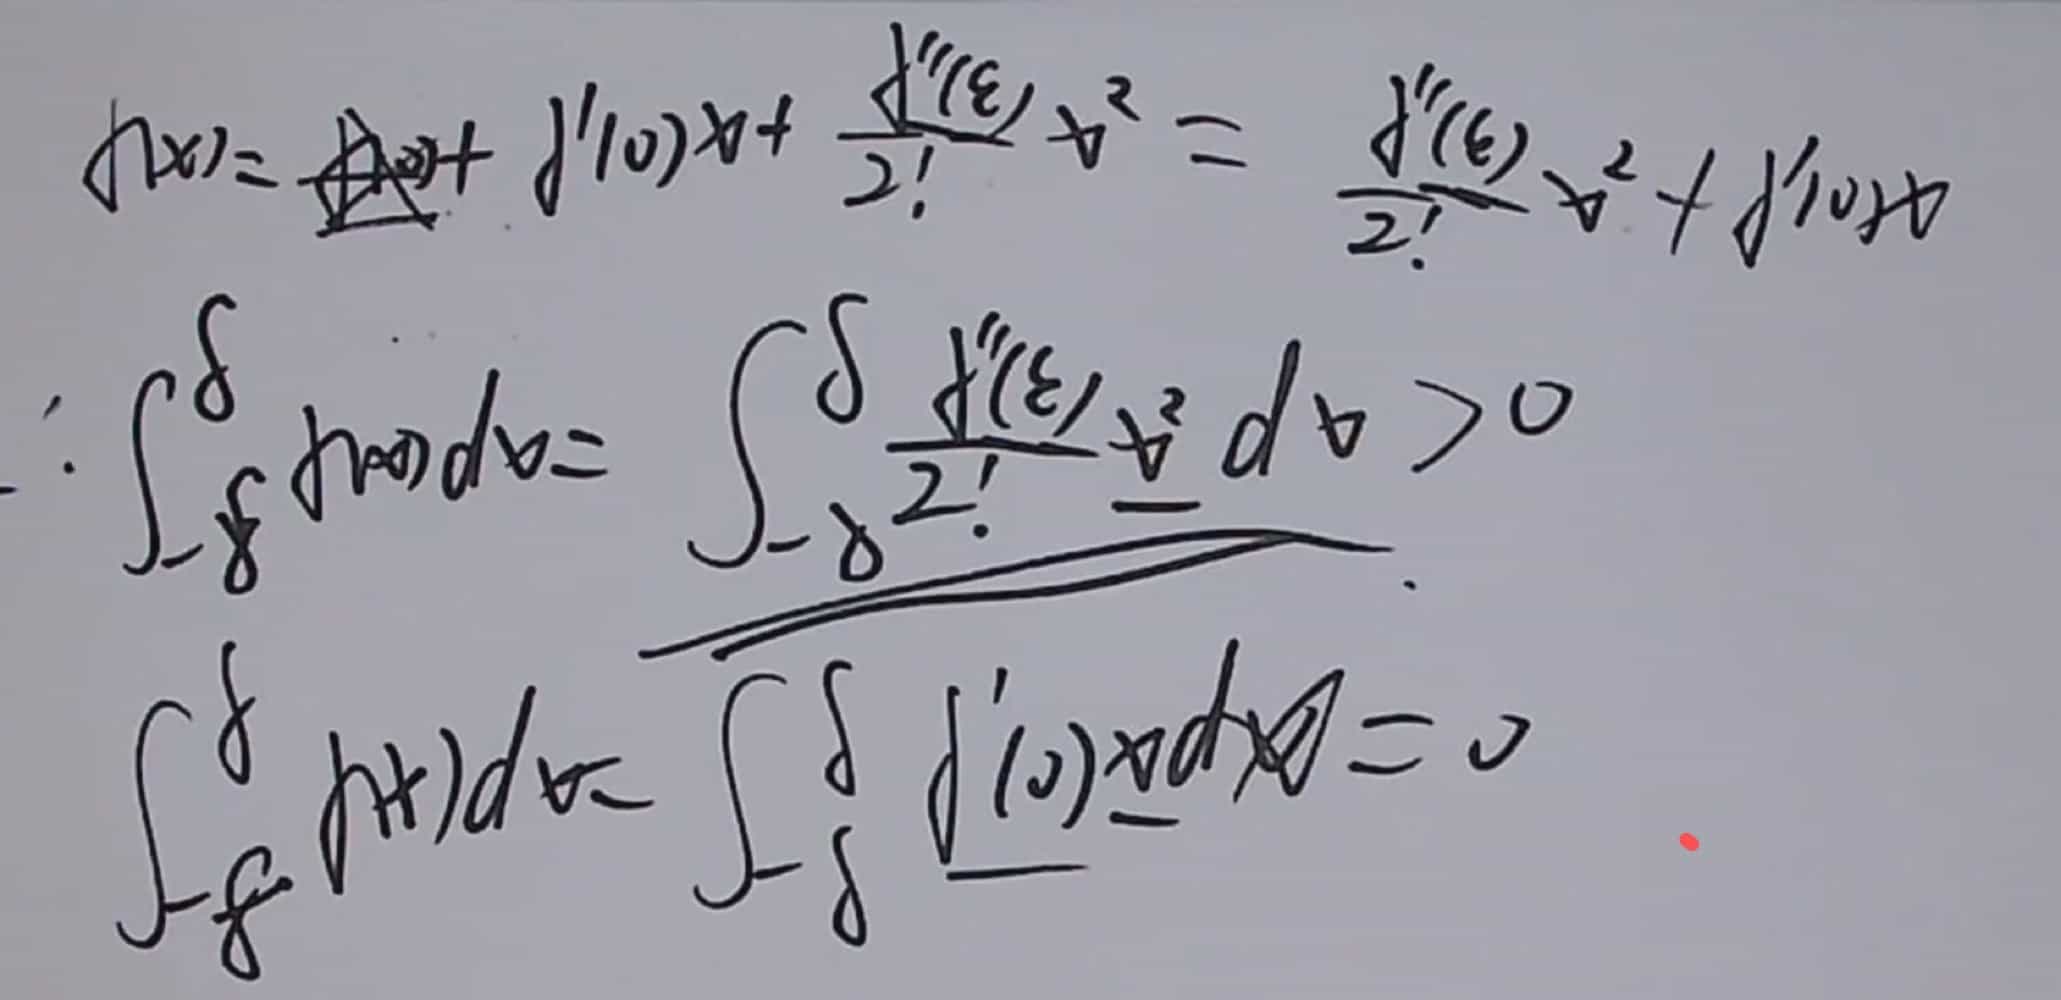 f(x) = f(0) + f'(0)x + f''(ξ)/2! x² = f''(ξ)/2! x² + f'(0)x
∴ ∫_{-δ}^{δ} f(x)dx = ∫_{-δ}^{δ} f''(ξ)/2! x² dx > 0
∫_{-δ}^{δ} f(x)dx = ∫_{-δ}^{δ} f'(0)xdx = 0